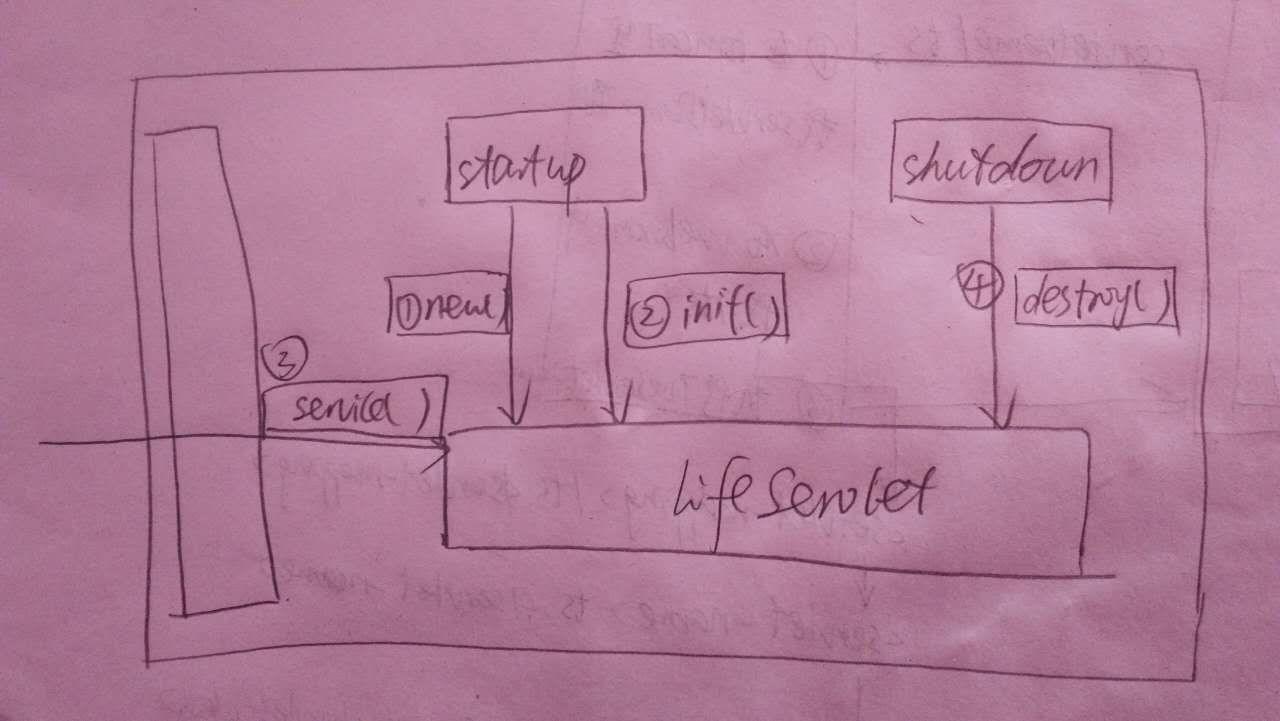 startup
shutdown
① new()
② init()
④ destroy()
③
service()
LifeServlet